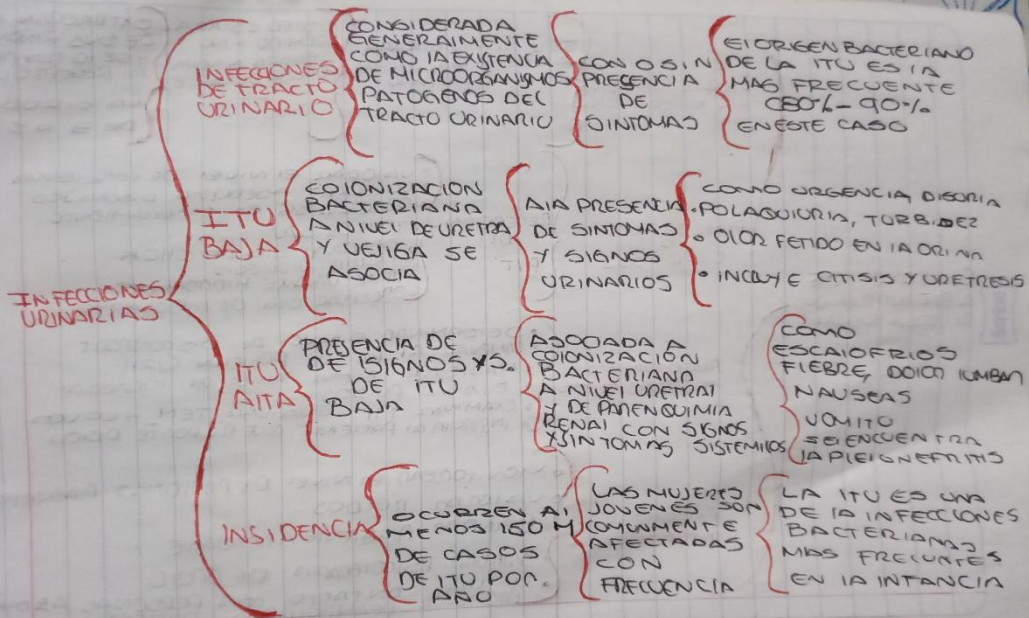 INFECCIONES
URINARIAS
INFECCIONES
DE TRACTO
URINARIO
CONSIDERADA
GENERALMENTE
COMO LA EXISTENCIA
DE MICROORGANISMOS
PATOGENOS DEL
TRACTO URINARIO
CON O SIN
PRESENCIA
DE
SINTOMAS
El ORIGEN BACTERIANO
DE LA ITU ES LA
MAS FRECUENTE
(80%-90%
EN ESTE CASO
ITU
BAJA
COLONIZACION
BACTERIANA
A NIVEL DE URETRA
Y VEJIGA SE
ASOCIA
A LA PRESENCIA
DE SINTOMAS
Y SIGNOS
URINARIOS
COMO URGENCIA DISORIA
• POLAQUIURIA, TURBIDEZ
• OLOR FETIDO EN LA ORINA
• INCLUYE CITISIS Y URETRESIS
ITU
ALTA
PRESENCIA DE
DE SIGNOS Y S.
DE ITU
BAJA
ASOCIADA A
COLONIZACIÓN
BACTERIANA
A NIVEL URETRAL
Y DE PARENQUIMIA
RENAL CON SIGNOS
Y SINTOMAS SISTEMICOS
COMO
ESCALOFRIOS
FIEBRE, DOLOR LUMBAR
NAUSEAS
VOMITO
SE ENCUENTRA
LA PIELONEFRITIS
INSIDENCIA
OCURREN AL
MENOS 150 M
DE CASOS
DE ITU POR
AÑO
LAS MUJERES
JOVENES SON
COMUNMENTE
AFECTADAS
CON
FRECUENCIA
LA ITU ES UNA
DE LA INFECCIONES
BACTERIANAS
MAS FRECUNTES
EN LA INFANCIA